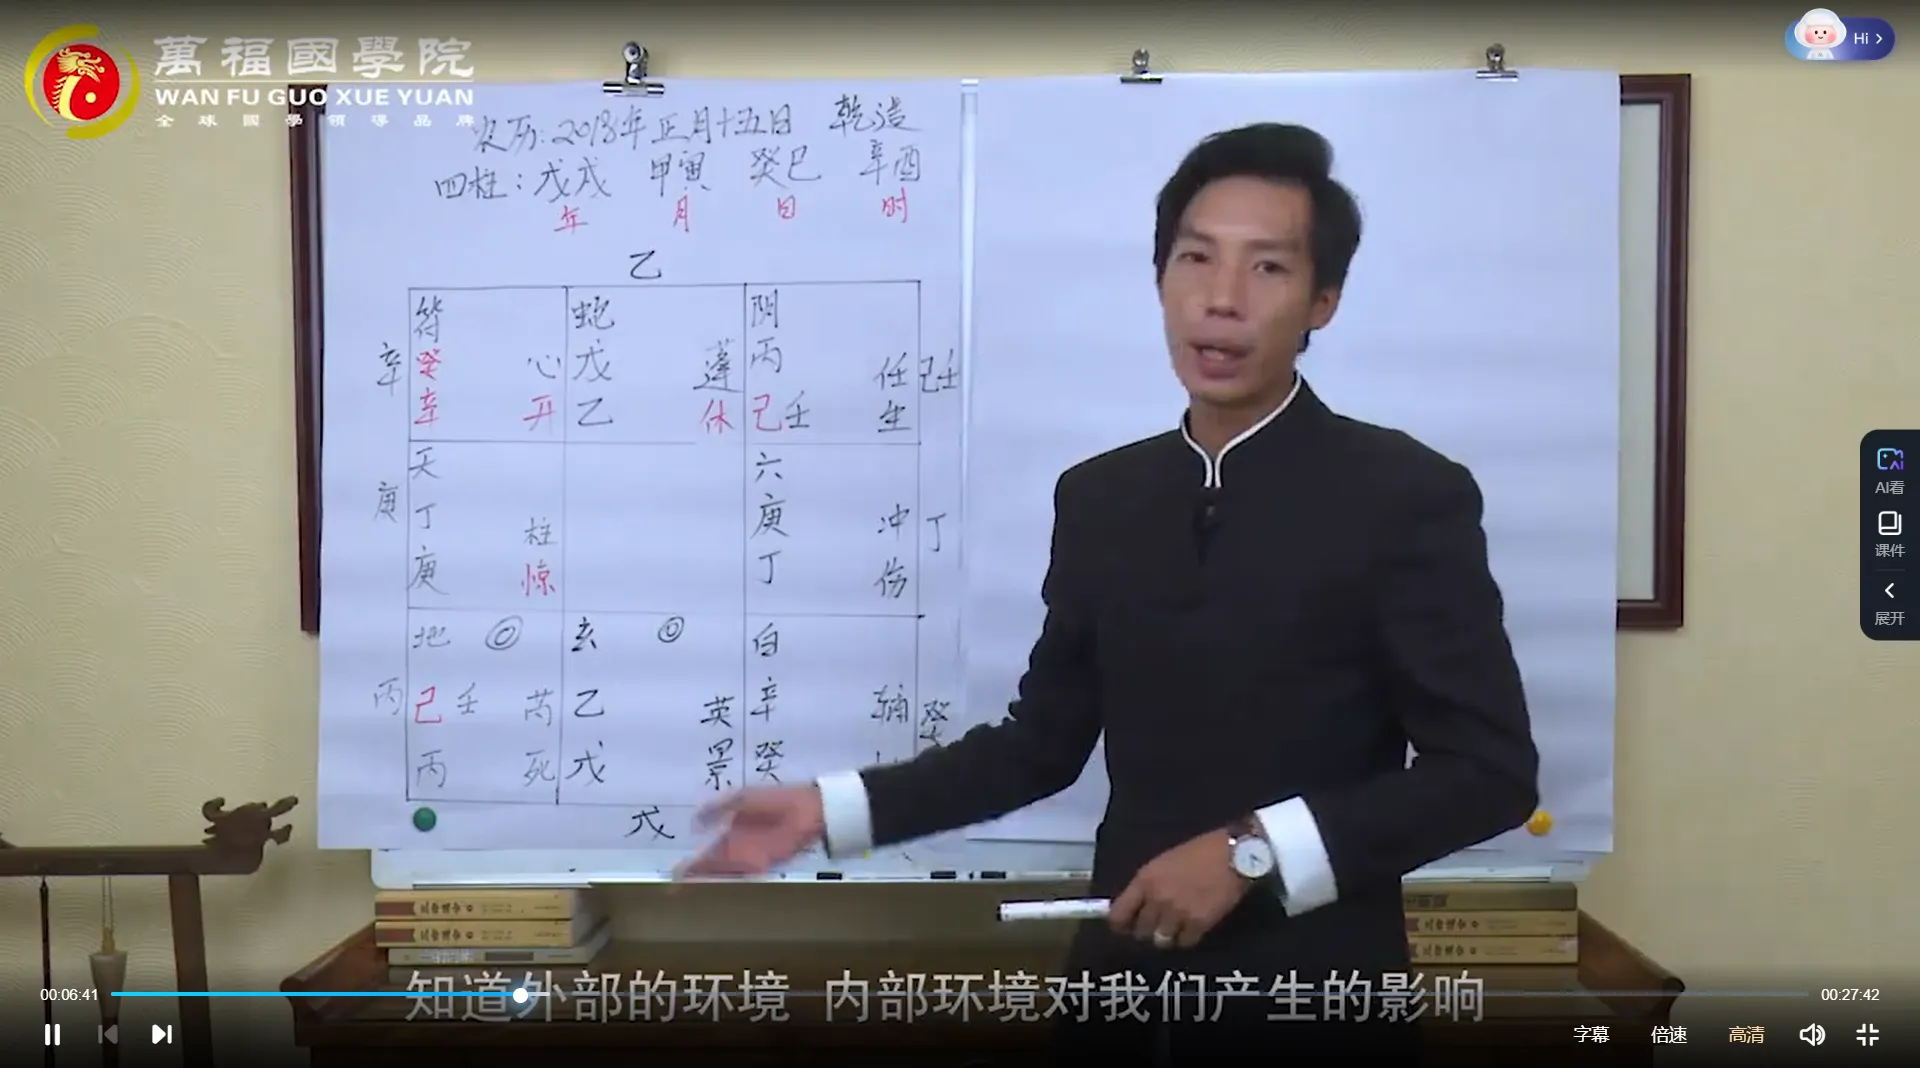 萬福國學院
WAN FU GUO XUE YUAN
全球國學領導品牌
Hi
农历:2018年正月十五日 乾造
四柱:戊戌 甲寅 癸巳 辛酉
年 月 日 时
乙
符 蛇 阴
辛 癸 心 戊 蓬 丙 任 己壬
辛 开 乙 休 己壬 生
天 六
庚 丁 柱 庚 冲 丁
庚 惊 丁 伤
地 ◎ 玄 ◎ 白
丙 己 壬 芮 乙 英 辛 辅 癸
丙 死 戊 景 癸
戊
AI看
课件
展开
知道外部的环境 内部环境对我们产生的影响
00:06:41
00:27:42
字幕 倍速 高清